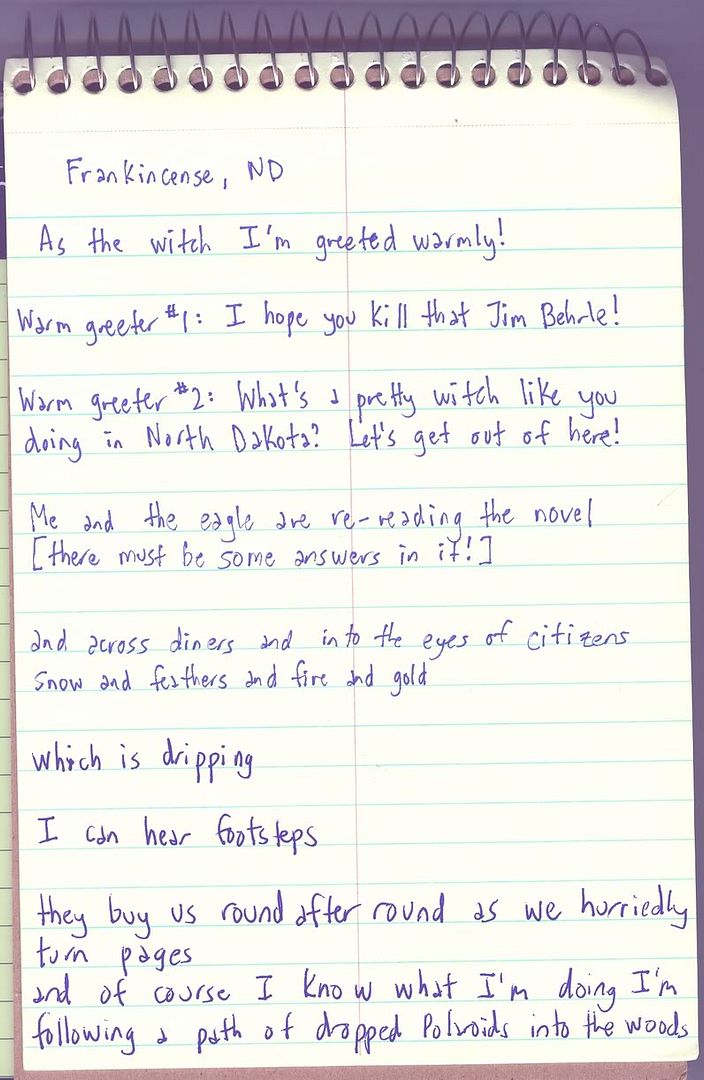 Frankincense, ND
As the witch I'm greeted warmly!
Warm greeter #1: I hope you kill that Jim Behrle!
Warm greeter #2: What's a pretty witch like you
doing in North Dakota? Let's get out of here!
Me and the eagle are re-reading the novel
[there must be some answers in it!]
and across diners and into the eyes of citizens
snow and feathers and fire and gold
which is dripping
I can hear footsteps
they buy us round after round as we hurriedly
turn pages
and of course I know what I'm doing I'm
following a path of dropped Polroids into the woods